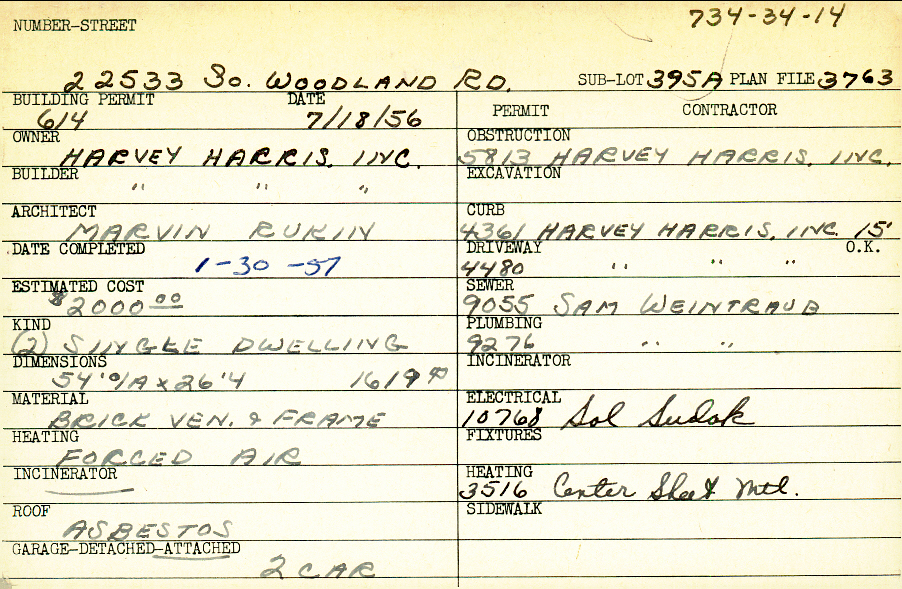 734-34-14
NUMBER-STREET
22533 So. WOODLAND RD. SUB-LOT 395A PLAN FILE 3763
BUILDING PERMIT DATE
614 7/18/56
OWNER
HARVEY HARRIS, INC.
BUILDER
" " "
ARCHITECT
MARVIN RUKIN
DATE COMPLETED
1-30-57
ESTIMATED COST
$2000 00
KIND
(2) SINGLE DWELLING
DIMENSIONS
54' x 26'4
MATERIAL
BRICK VEN. & FRAME
HEATING
FORCED AIR
INCINERATOR
ROOF
ASBESTOS
GARAGE-DETACHED-ATTACHED
2 CAR
PERMIT CONTRACTOR
OBSTRUCTION
5813 HARVEY HARRIS, INC.
EXCAVATION
CURB
4361 HARVEY HARRIS, INC. 15'
DRIVEWAY O.K.
4480 " " "
SEWER
9055 SAM WEINTRAUB
PLUMBING
9276 " "
INCINERATOR
ELECTRICAL
10768 Sol Sudak
FIXTURES
HEATING
3516 Center Sheet Mtl.
SIDEWALK